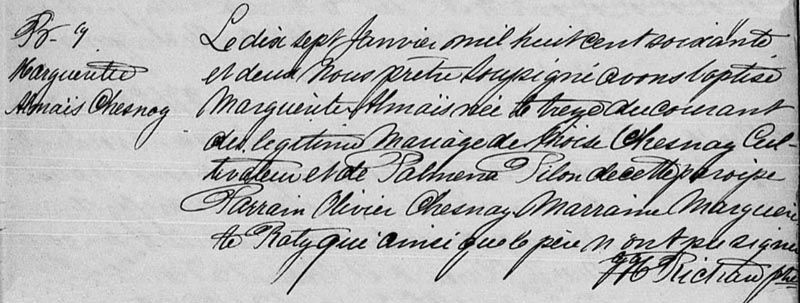 B- 9
Marguerite
Almaïs Chesnay
Le dix sept Janvier mil huit cent soixante
et deux Nous prêtre soussigné avons baptisé
Marguerite Almaïs née le treze du courant
du legitime Mariage de Moïse Chesnay Cul-
tivateur et de Palmena Pilon de cette paroisse
Parrain Olivier Chesnay Marraine Margueri
te qui ainsi que le père n'ont pu signer
ptre